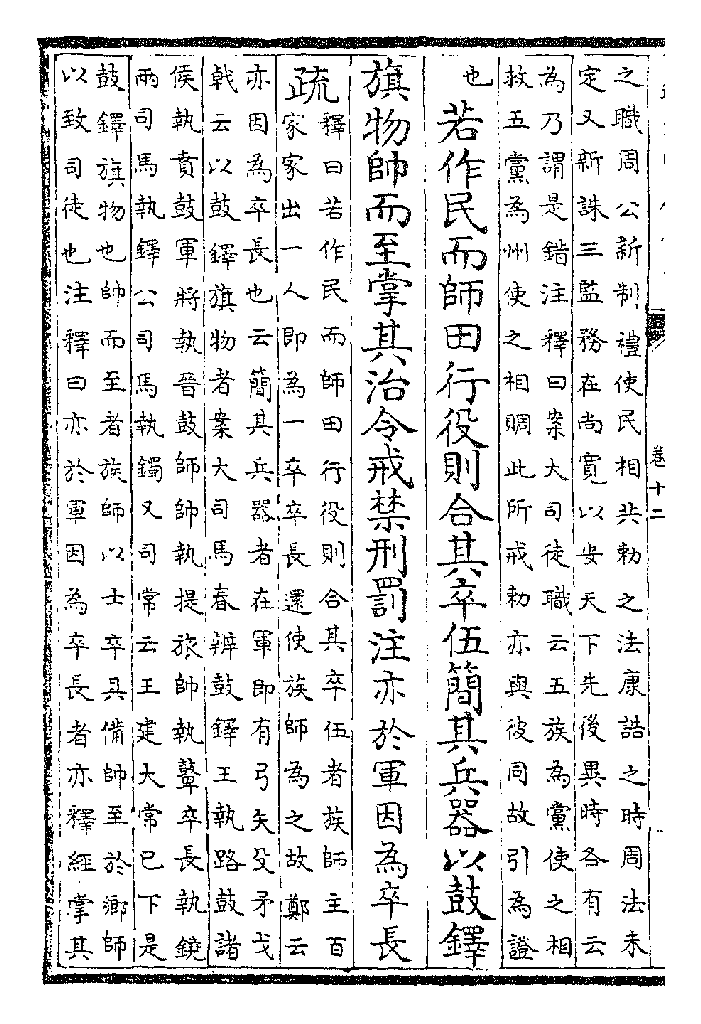 之職周公新制禮使民相共勑之法康誥之時周法未
定又新誅三監務在尚寛以安天下先後異時各有云
為乃謂是錯注釋曰案大司徒職云五族為黨使之相
救五黨為州使之相賙此所戒勑亦與彼同故引為證
也
若作民而師田行役則合其卒伍簡其兵器以鼓鐸
旗物帥而至掌其治令戒禁刑罰注亦於軍因為卒長
疏
釋曰若作民而師田行役則合其卒伍者族師主百
家家出一人即為一卒卒長還使族師為之故鄭云
亦因為卒長也云簡其兵器者在軍即有弓矢殳矛戈
戟云以鼓鐸旗物者案大司馬春辨鼓鐸王執路鼓諸
侯執賁鼓軍將執晉鼓師帥執提旅帥執鼙卒長執鐃
兩司馬執鐸公司馬執鐲又司常云王建大常已下是
鼓鐸旗物也帥而至者族師以士卒具備帥至於鄉師
以致司徒也注釋曰亦於軍因為卒長者亦釋經掌其
卷十二